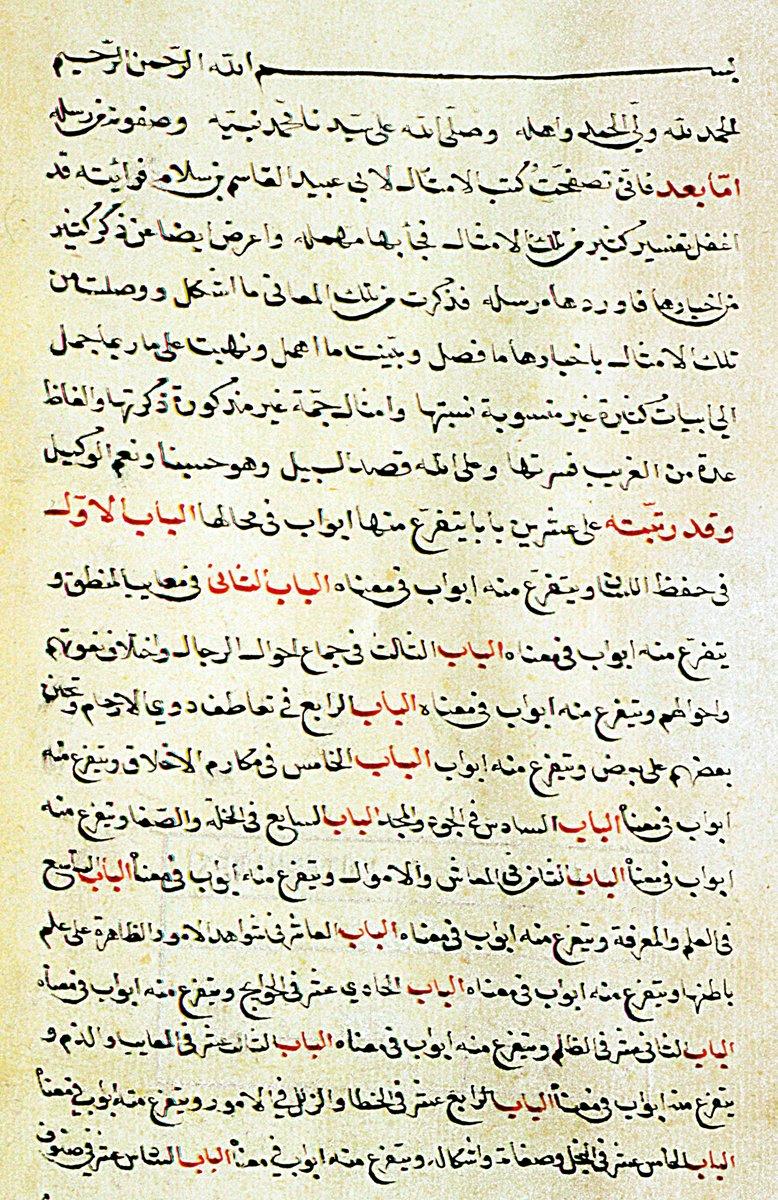 بسم الله الرحمن الرحيم
الحمد لله ولي الحمد واهله وصلى الله على سيدنا محمد نبيه وصفوته من رسله
اما بعد فاني تصفحت كتب الامثال لابي عبيد القاسم بن سلام فرأيته قد
اغفل تفسير كثير من تلك الامثال فجأ بها مهملة واعرض ايضا عن ذكر كثير
من اخبارها فاوردها مرسله فذكرت من تلك المعاني ما اشكل ووصلت من
تلك الامثال باخبارها ما فصل وبينت ما اهمل ونبهت على ما ربما اجمل
الى ابيات كثيرة غير منسوبة نسبتها وامثال جمة غير مذكورة ذكرتها والفاظ
عدة من الغريب فسرتها وعلى الله قصد السبيل وهو حسبنا ونعم الوكيل
وقد رتبته على عشرين بابا يتفرع منها ابواب في محالها الباب الاول
في حفظ اللسان ويتفرع منه ابواب في معناه الباب الثاني في معايب المنطق و
يتفرع منه ابواب في معناه الباب الثالث في جماع احوال الرجال واختلاف نعوتهم
واحوالهم ويتفرع منه ابواب في معناه الباب الرابع في تعاطف ذوي الارحام وتحنن
بعضهم على بعض ويتفرع منه ابواب الباب الخامس في مكارم الاخلاق ويتفرع منه
ابواب في معناه الباب السادس في الجود والمجد الباب السابع في الخلة والصفا ويتفرع منه
ابواب في معناه الباب الثامن في المعاش والاموال ويتفرع منه ابواب في معناه الباب التاسع
في العلم والمعرفة ويتفرع منه ابواب في معناه الباب العاشر في شواهد الامور الظاهرة على علم
باطنها ويتفرع منه ابواب في معناه الباب الحادي عشر في الحوايج ويتفرع منه ابواب في معناه
الباب الثاني عشر في الظلم ويتفرع منه ابواب في معناه الباب الثالث عشر في المعايب والذم و
يتفرع منه ابواب في معناه الباب الرابع عشر في الخطا والزلل في الامور ويتفرع منه ابواب في معناه
الباب الخامس عشر في البخل وصفاته واشكاله ويتفرع منه ابواب في معناه الباب السادس عشر في صنوف